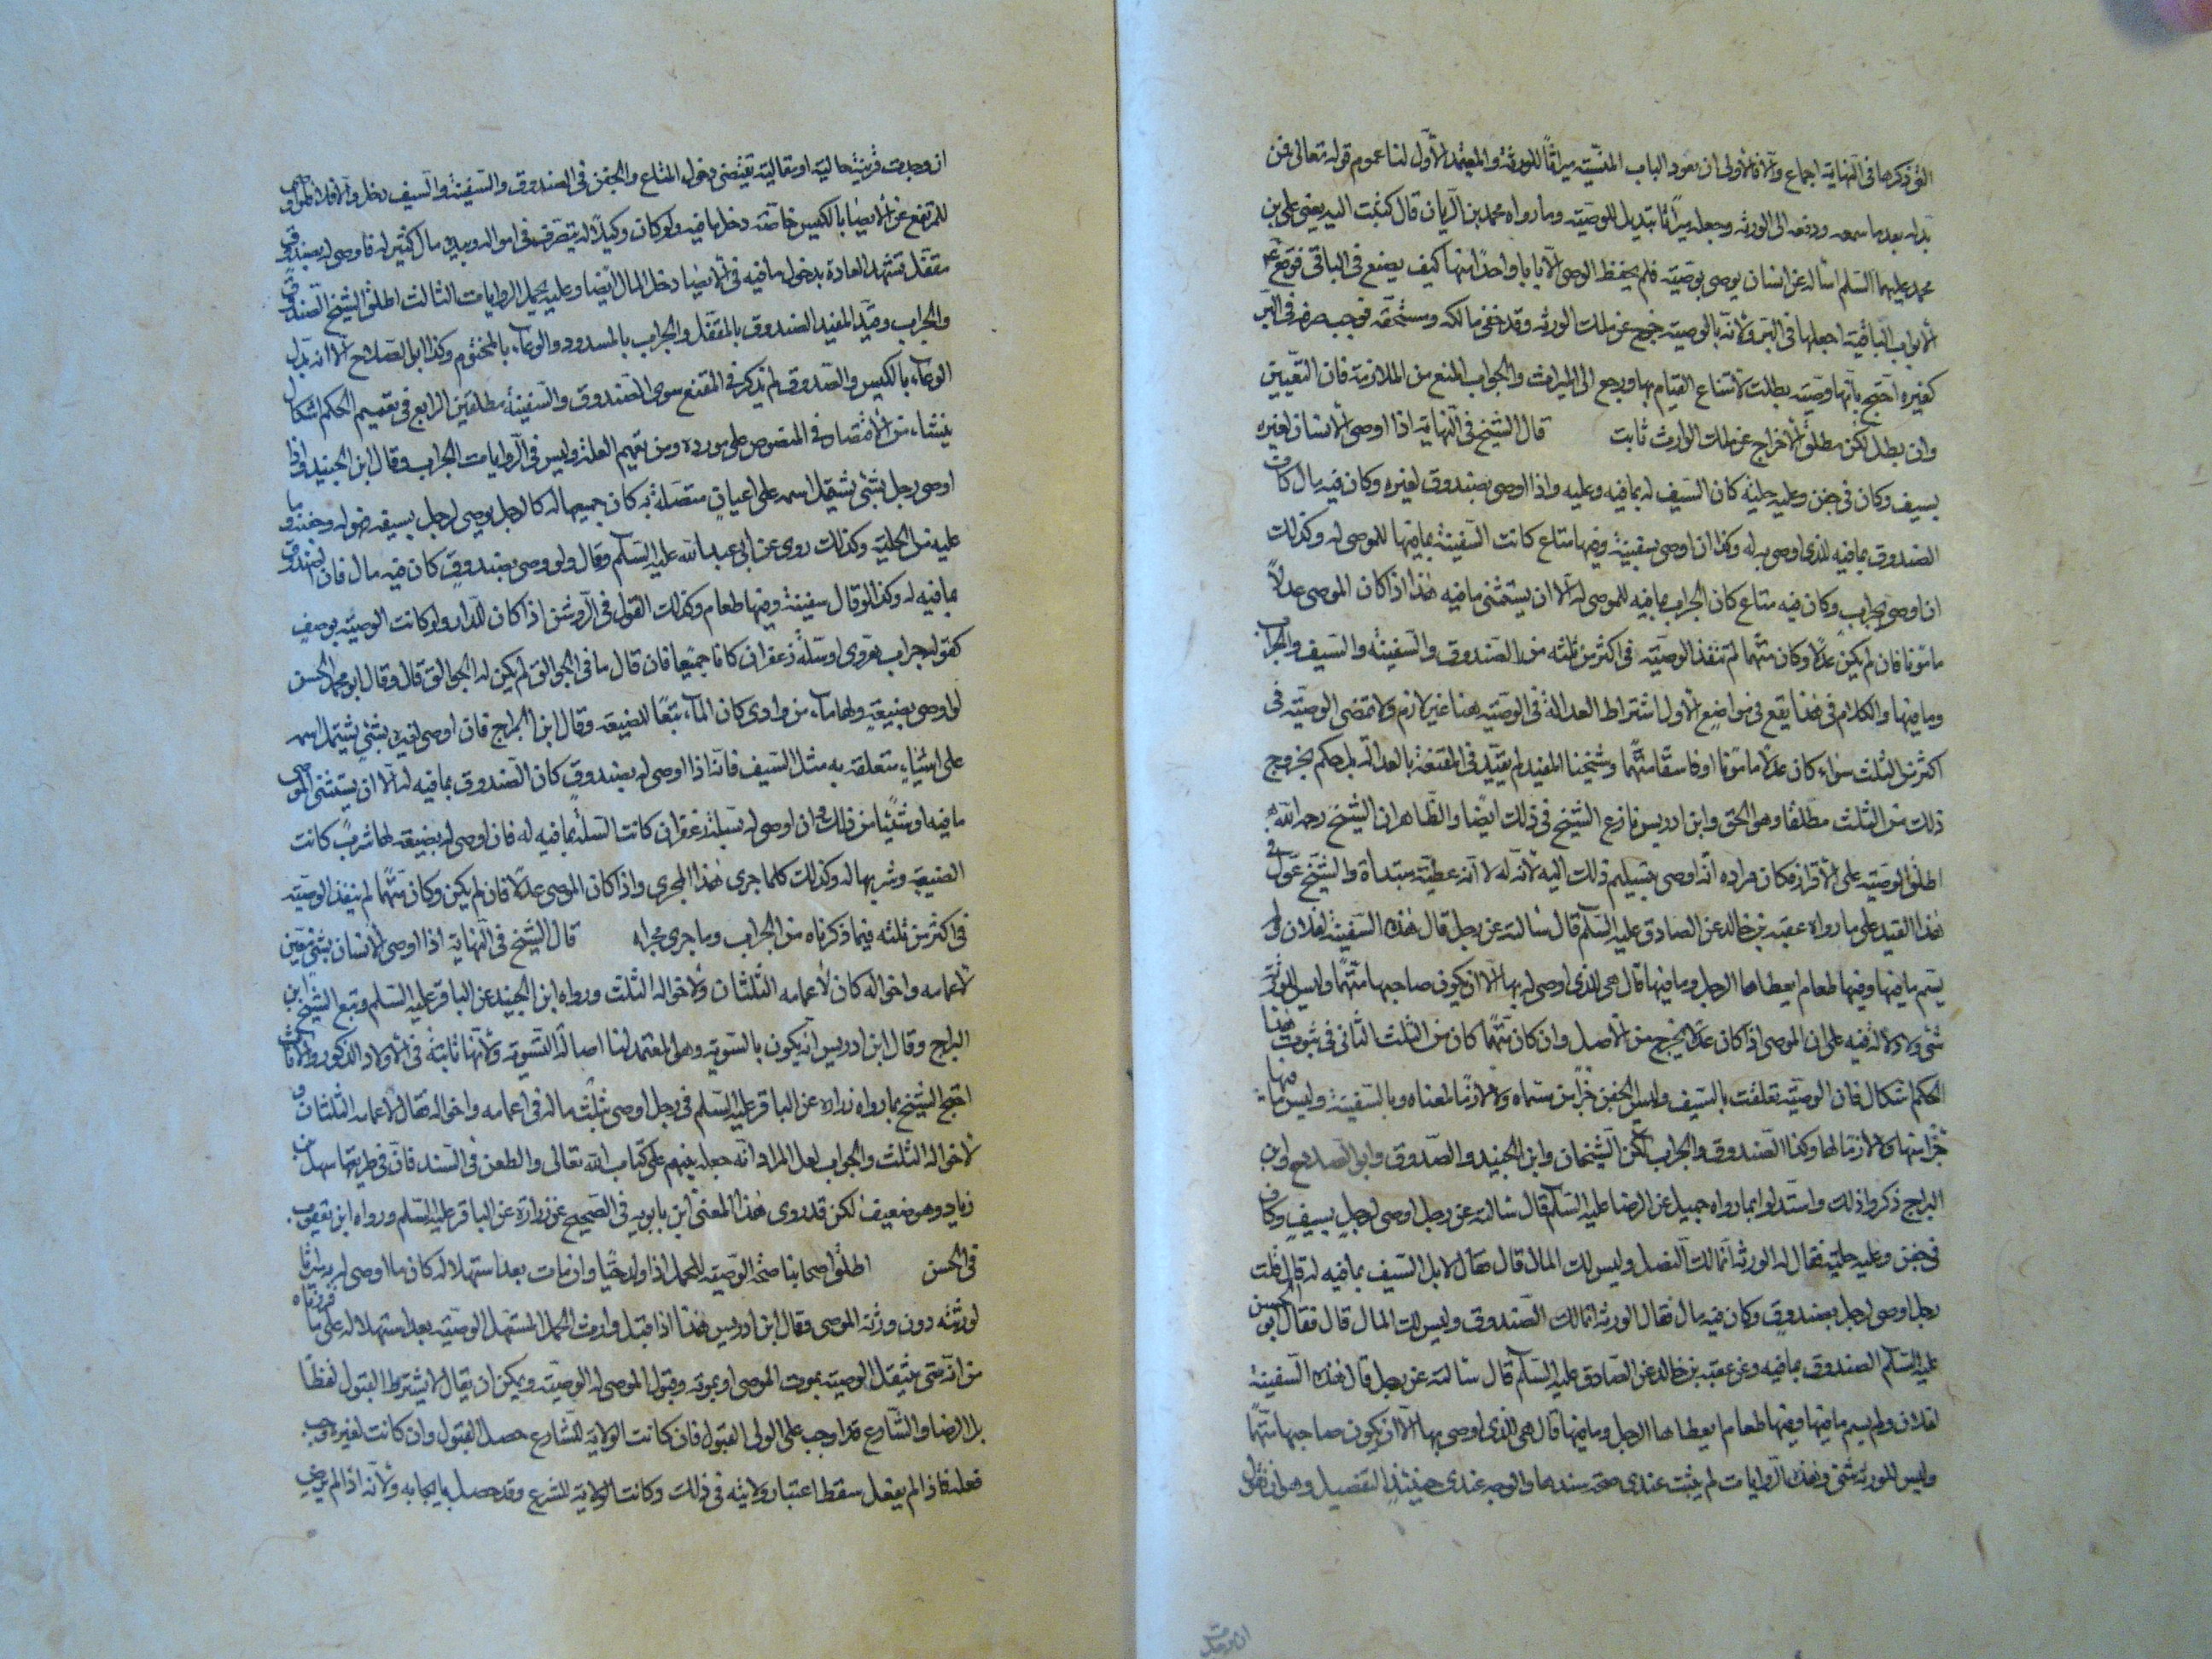 التى ذكرها فى النهاية اجماع والا فالاولى ان يعود الباب المنسية ميراثا للورثة والمعتمد الاول لنا عموم قوله تعالى فمن
بدله بعد ما سمعه ودفعه الى الورثه وجعله ميراثا تبديل للوصيته وما رواه محمد بن الريان قال كتبت اليه يعنى على بن
محمد عليهما السلم اساله عن انسان يوصى بوصيته فلم يحفظ الوصى الا بابا واحدا منها كيف يصنع فى الباقى فوقع ع
الابواب الباقية اجعلها فى البر ولانه بالوصيته خرج عن ملك الورثه وقد خفى مالكه ومستحقه فوجب صرفه فى البر
كغيره احتج بانها وصيته بطلت لامتناع القيام بها ورجع الى الميراث والجواب المنع من الملازمة فان التعيين
وان بطل لكن مطلق الاخراج عن ملك الوارث ثابت قال الشيخ فى النهاية اذا اوصى الانسان لغيره
بسيف وكان فى جفن وعليه حلية كان السيف له بما فيه وعليه واذا اوصى بصندوق لغيره وكان فيه مال كان
الصندوق بما فيه للذى اوصى به له وكذا ان اوصى بسفينة وفيها متاع كانت السفينة بما فيها للموصى له وكذلك
ان اوصى بجراب وكان فيه متاع كان الجراب بما فيه للموصى له الا ان يستثنى ما فيه هذا اذا كان الموصى عدلا
مامونا فان لم يكن عدلا وكان متهما لم تنفذ الوصيته فى اكثر من ثلثه من الصندوق والسفينه والسيف والجراب
وما فيها والكلام فى هذا يقع فى مواضع الاول اشتراط العدالة فى الوصيته هنا غير لازم ولا تمضى الوصيته فى
اكثر من الثلث سواء كان عدلا مامونا او فاسقا متهما وشيخنا المفيد لم يقيد فى المقنعة بالعدالة بل حكم بخروج
ذلك من الثلث مطلقا وهو الحق وابن ادريس نازع الشيخ فى ذلك ايضا والظاهر ان الشيخ رحمه الله
اطلق الوصيته على الاقرار فكان مراده انه اوصى بتسليم ذلك اليه لانه له لا انه عطية مبتدأة والشيخ عول فى
هذا القيد على ما رواه عقبه بن خالد عن الصادق عليه السلم قال سالته عن رجل قال هذه السفينة لفلان ولم
يسم ما فيها وفيها طعام يعطاها الرجل وما فيها قال هى للذى اوصى له بها الا ان يكون صاحبها متهما وليس للورثة
شى ولا دلاله فيه على ان الموصى اذا كان عدلا يخرج من الاصل وان كان متهما كان من الثلث الثانى فى ثبوت هذا
الحكم اشكال فان الوصيته تعلقت بالسيف وليس الجفن جزءا من مسماه ولا لازما لمعناه وبالسفينة وليس ما فيها
جزءا منها ولا لازما لها وكذا الصندوق والجراب لكن الشيخان وابن الجنيد والصدوق وابو الصلاح وابن
البراج ذكروا ذلك واستدلوا بما رواه جميل عن الرضا عليه السلم قال سالته عن رجل اوصى لرجل بسيف وكان
فى جفن وعليه حلية فقال له الورثة انما لك النصل وليس لك المال قال فقال لا بل السيف بما فيه له قال قلت
رجل اوصى لرجل بصندوق وكان فيه مال فقال الورثة انما لك الصندوق وليس لك المال قال فقال ابو الحسن
عليه السلم الصندوق بما فيه وعن عقبه بن خالد عن الصادق عليه السلم قال سالته عن رجل قال هذه السفينة
لفلان ولم يسم ما فيها وفيها طعام يعطاها الرجل وما فيها قال هى للذى اوصى بها الا ان يكون صاحبها متهما
وليس للورثة شى وهذه الروايات لم يثبت عندى صحة سندها والوجه عندى حينئذ التفصيل وهو ان نقول
ان وجدت
ان وجدت قرينة حالية او مقالية تقتضى دخول المتاع والجفن فى الصندوق والسفينة والسيف دخل والا فلا فلو اوصى
للمرتفع عن الايصاء بالكيس خاصة دخل ما فيه ولو كان وكيلا له يتصرف فى امواله وبيده مال كثير له فاوصى له بصندوق
مقفل تشهد العادة بدخول ما فيه فى الايصاء دخل المال ايضا وعليه يحمل الروايات الثالث اطلق الشيخ الصندوق
والجراب وقيد المفيد الصندوق بالمقفل والجراب بالمسدود والوعاء بالمختوم وكذا ابو الصلاح الا انه بدل
الوعاء بالكيس والصدوق لم يذكر فى المقنع سوى الصندوق والسفينة مطلقين الرابع فى تعميم الحكم اشكال
ينشاء من الاقتصار فى المنصوص على مورده ومن تعميم العلة وليس فى الروايات الجراب وقال ابن الجنيد واذا
اوصى رجل بشئ يشتمل اسمه على اعيان متصلة به كان جميعها له كالرجل يوصى لرجل بسيفه فهو له وجفنه وما
عليه من الحلية وكذلك روى عن ابى عبد الله عليه السلم وقال ولو وصى بصندوق كان فيه مال فان الصندوق
بما فيه له وكذا لو قال سفينة وفيها طعام وكذلك القول فى الروشن اذا كان للدار ولو كانت الوصيته بوصف
كقوله جراب هروى او سلة زعفران كانا جميعا فان قال ما فى الجوالق لم يكن له الجوالق قال وقال ابو محمد الحسن
لو اوصى بضيعة ولها ماء من وادى كان الماء تبعا للضيعة وقال ابن البراج فان اوصى لغيره بشئ يشتمل اسمه
على اشياء متعلقه به مثل السيف فانه اذا اوصى له بصندوق كان الصندوق بما فيه له الا ان يستثنى الموصى
ما فيه او شيئا من ذلك وان اوصى له بسلة زعفران كانت السلة بما فيه له فان اوصى له بضيعة لها شرب كانت
الضيعة وشربها له وكذلك كلما جرى هذا المجرى واذا كان الموصى عدلا فان لم يكن وكان متهما لم ينفذ الوصيته
فى اكثر من ثلثه فيما ذكرناه من الجراب وما جرى مجراه قال الشيخ فى النهاية اذا اوصى الانسان بشئ معين
لاعمامه واخواله كان لاعمامه الثلثان ولاخواله الثلث ورواه ابن الجنيد عن الباقر عليه السلم وتبع الشيخ ابن
البراج وقال ابن ادريس انه يكون بالسوية وهو المعتمد لنا اصالة التسوية ولانها ثابتة فى الاولاد الذكور والاناث
احتج الشيخ بما رواه زراره عن الباقر عليه السلم فى رجل اوصى بثلث ماله فى اعمامه واخواله فقال لاعمامه الثلثان و
لاخواله الثلث والجواب لعل المراد انه جعله فيهم على كتاب الله تعالى والطعن فى السند فان فى طريقها سهل بن
زياد وهو ضعيف لكن قد روى هذا المعنى ابن بابويه فى الصحيح عن زرارة عن الباقر عليه السلم ورواه ابن يعقوب
فى الحسن اطلق اصحابنا صحة الوصيته للحمل اذا ولد حيا وان مات بعد استهلاله كان ما اوصى له به ميراثا
لورثته دون ورثة الموصى وقال ابن ادريس هذا اذا قبل وارث الحمل المستهل الوصيته بعد استهلاله على ما قررناه
من انه متى ينتقل الوصيته بموت الموصى او بموته وقبول الموصى له الوصيته ويمكن ان يقال لا يشترط القبول لفظا
بل الرضا والشارع قد اوجب على الولى القبول فان كانت الولاية للشارع حصل القبول وان كانت لغيره وجب
فعله فاذا لم يفعل سقط اعتبار ولايته فى ذلك وكانت الولاية للشرع وقد حصل بايجابه ولانه اذا لم يرض